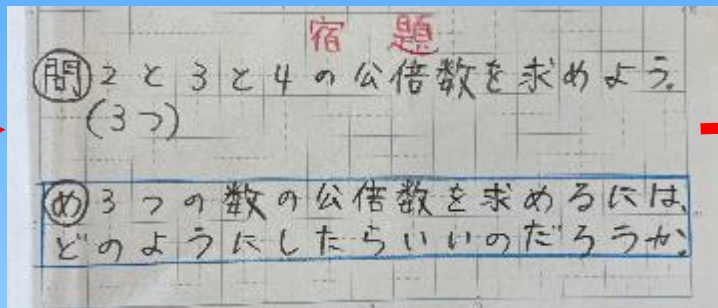 宿題
問 2と3と4の公倍数を求めよう。
(3つ)
め 3つの数の公倍数を求めるには、
どのようにしたらいいのだろうか。